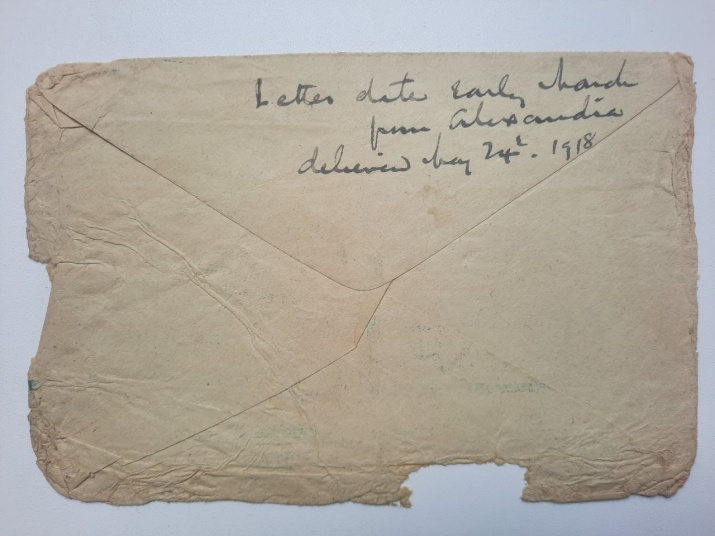 Letter date early March
from Alexandria
delivered May 24ᵗ. 1918